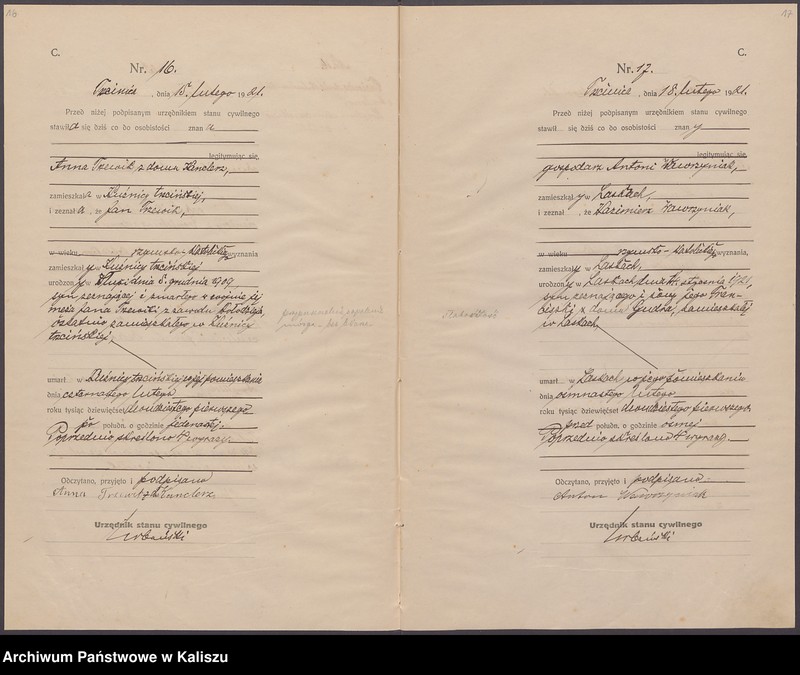 16
C.
Nr. 16.
Trcinica, dnia 15. lutego 1921.
Przed niżej podpisanym urzędnikiem stanu cywilnego
stawiła się dziś co do osobistości znana
legitymując się,
Anna Trzewik z domu
zamieszkała w Kuźnicy trzcińskiej,
i zeznała, że Jan Trzewik,
w wieku rzymsko-katolickiej wyznania
zamieszkały w Kuźnicy trzcińskiej
urodzony w dnia 8. grudnia 1909
syn zeznającej i zmarłego w wojnie jej
męża Jana Trzewik z zawodu kołodzieja,
ostatnio zamieszkałego w Kuźnicy
trzcińskiej,
umarł w Kuźnicy trzcińskiej w jej pomieszkaniu
dnia czternastego lutego
roku tysiąc dziewięćset dwudziestego pierwszego
po połudn. o godzinie jedenastej.
Poprzednio skreślono 4 wyrazy.
Odczytano, przyjęto i podpisano
Anna Trzewik
Urzędnik stanu cywilnego
Urbański
17
C.
Nr. 17.
Trcinica, dnia 18. lutego 1921.
Przed niżej podpisanym urzędnikiem stanu cywilnego
stawił się dziś co do osobistości znany
legitymując się,
gospodarz Antoni Wawrzyniak,
zamieszkały w Laskach,
i zeznał, że Kazimierz Wawrzyniak,
w wieku rzymsko-katolickiej wyznania,
zamieszkały w Laskach,
urodzony w Laskach dnia stycznia 1921,
syn zeznającego i żony jego Fran-
ciszki z domu Gudra, zamieszkałej
w Laskach
umarł w Laskach w jego pomieszkaniu
dnia osmnastego lutego
roku tysiąc dziewięćset dwudziestego pierwszego
przed połudn. o godzinie ósmej
Poprzednio skreślono 4 wyrazy.
Odczytano, przyjęto i podpisano
Anton Wawrzyniak
Urzędnik stanu cywilnego
Urbański
Archiwum Państwowe w Kaliszu